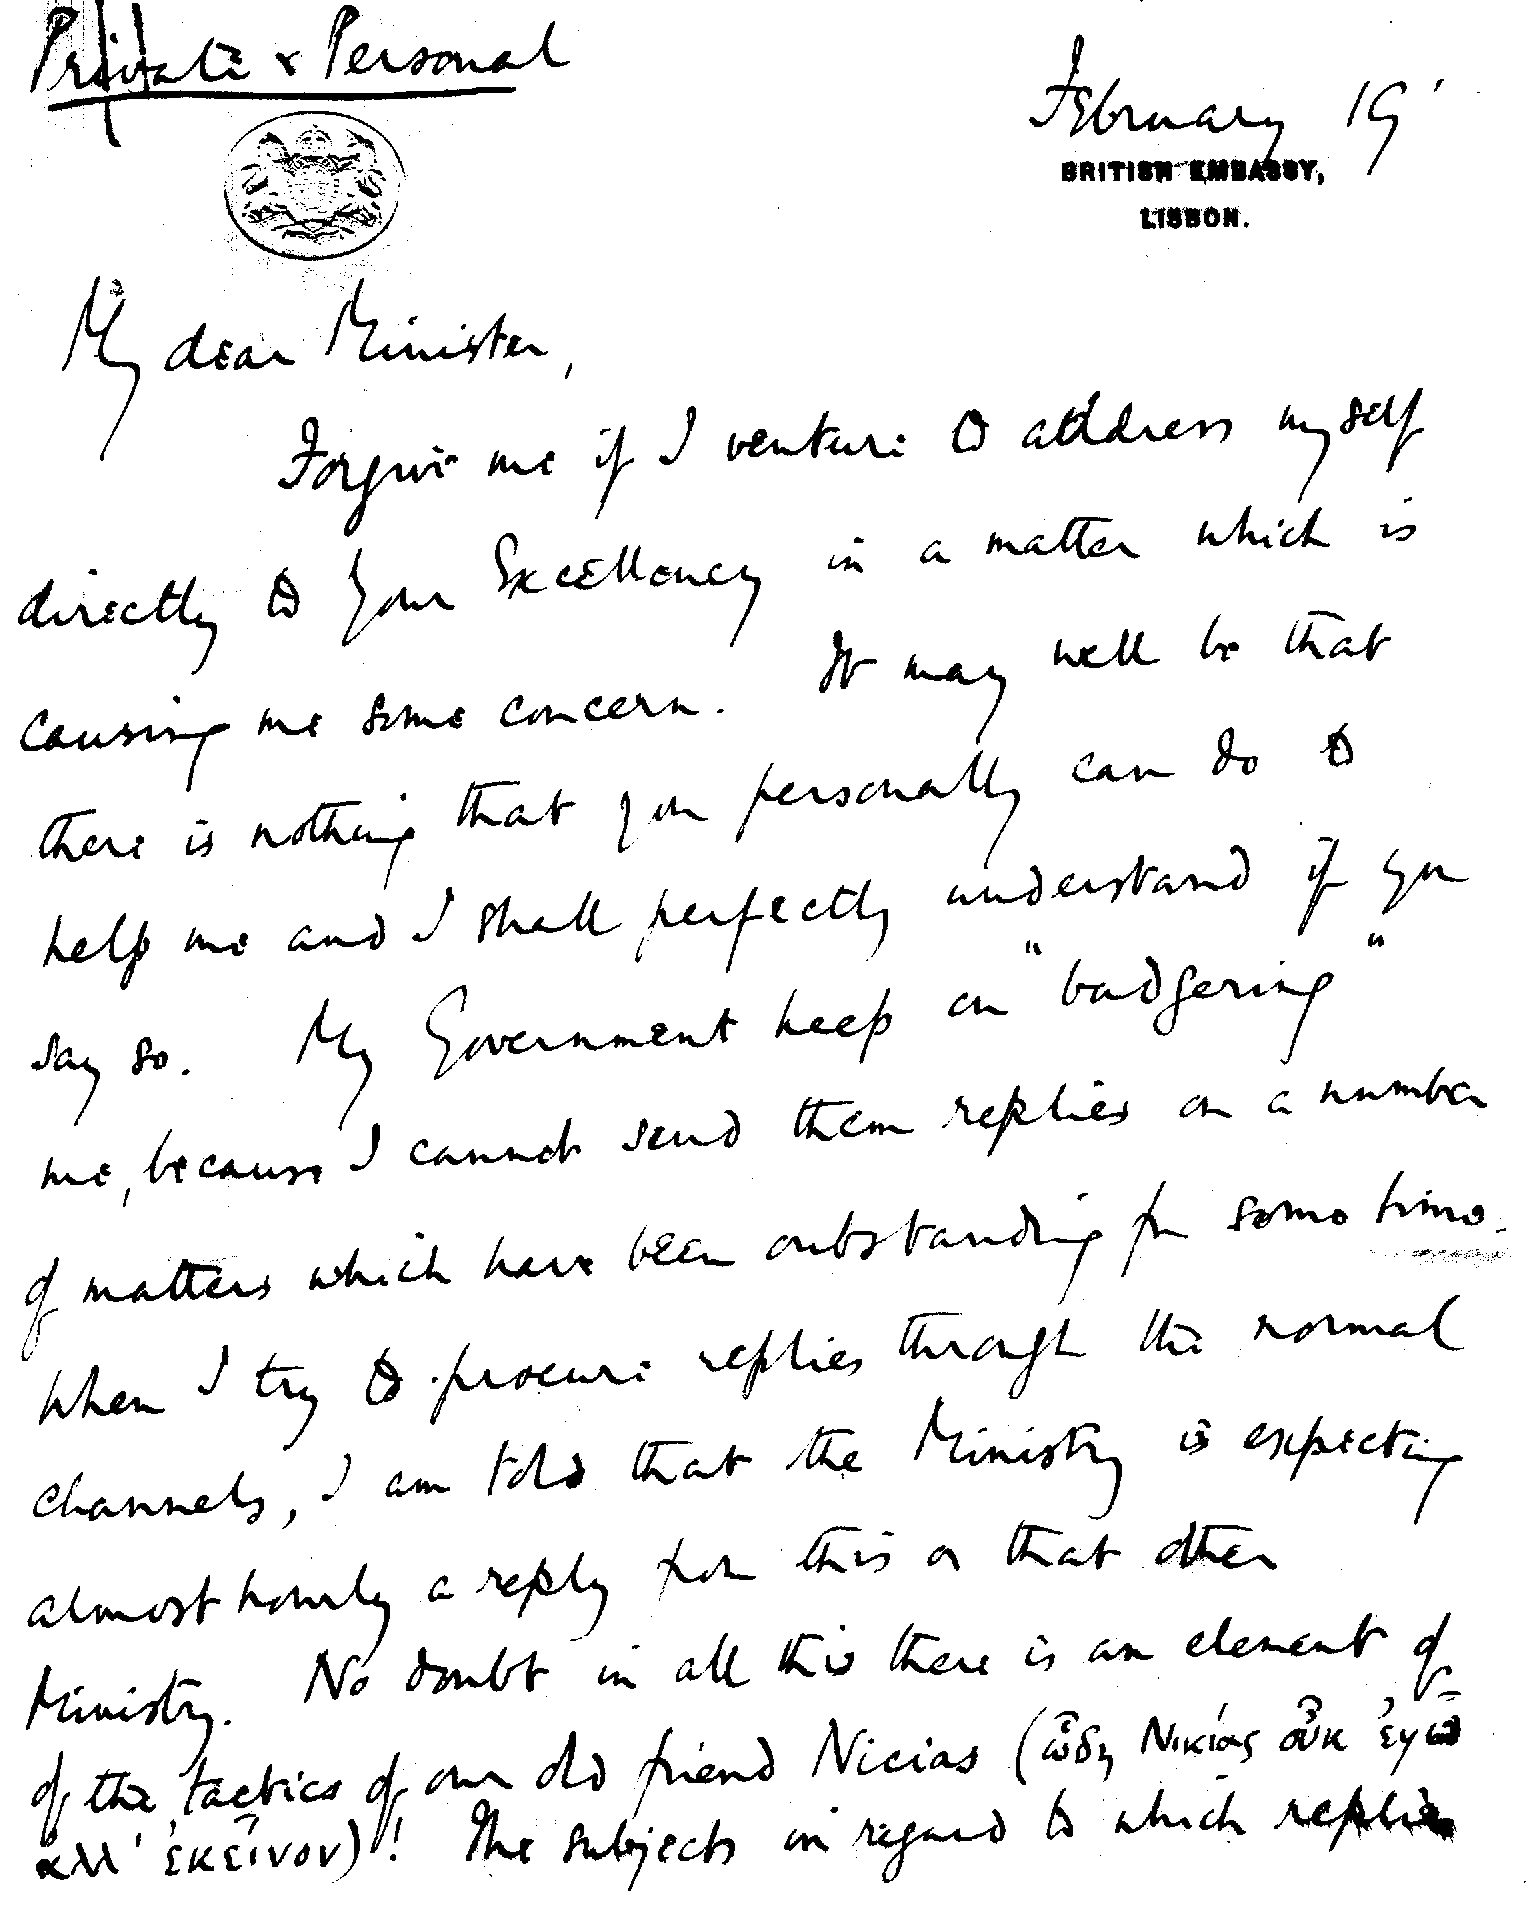 Private & Personal
February 19
BRITISH EMBASSY,
LISBON.
My dear Minister,
Forgive me if I venture to address myself
directly to Your Excellency in a matter which is
causing me some concern. It may well be that
there is nothing that you personally can do to
help me and I shall perfectly understand if you
say so. My Government keep on "badgering"
me, because I cannot send them replies on a number
of matters which have been outstanding for some time.
When I try to procure replies through the normal
channels, I am told that the Ministry is expecting
almost hourly a reply from this or that other
Ministry. No doubt in all this there is an element of
of the tactics of our old friend Nicias (ὧδη Νικίας οὖκ ἐγὼ
ἀλλ' ἐκεῖνον)! The subjects in regard to which replies